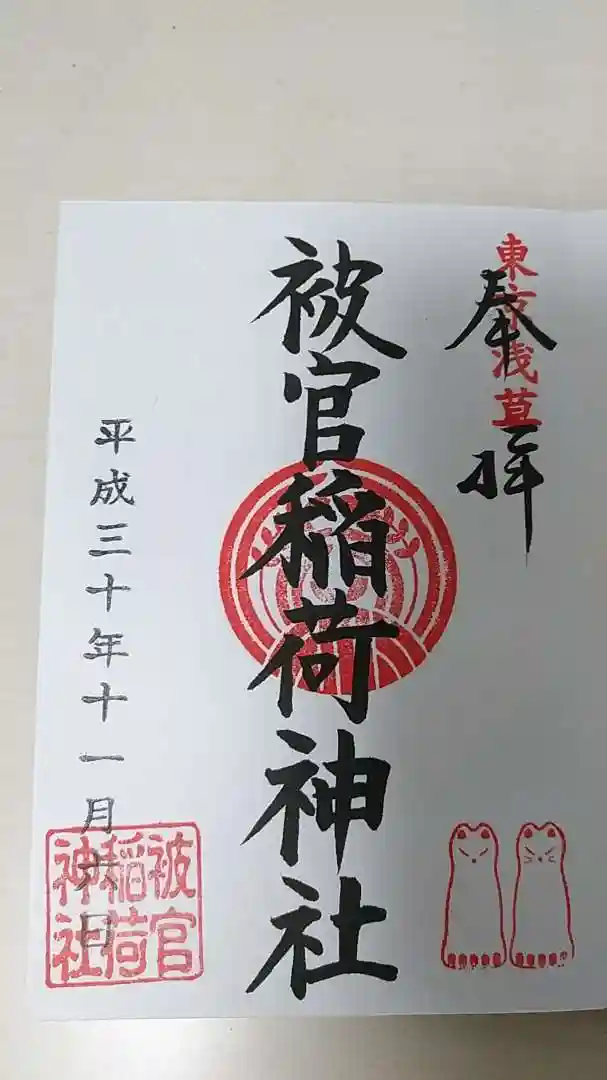 東京浅草
奉拝
被官稲荷神社
平成三十年十一月六日
被官
稲荷
神社